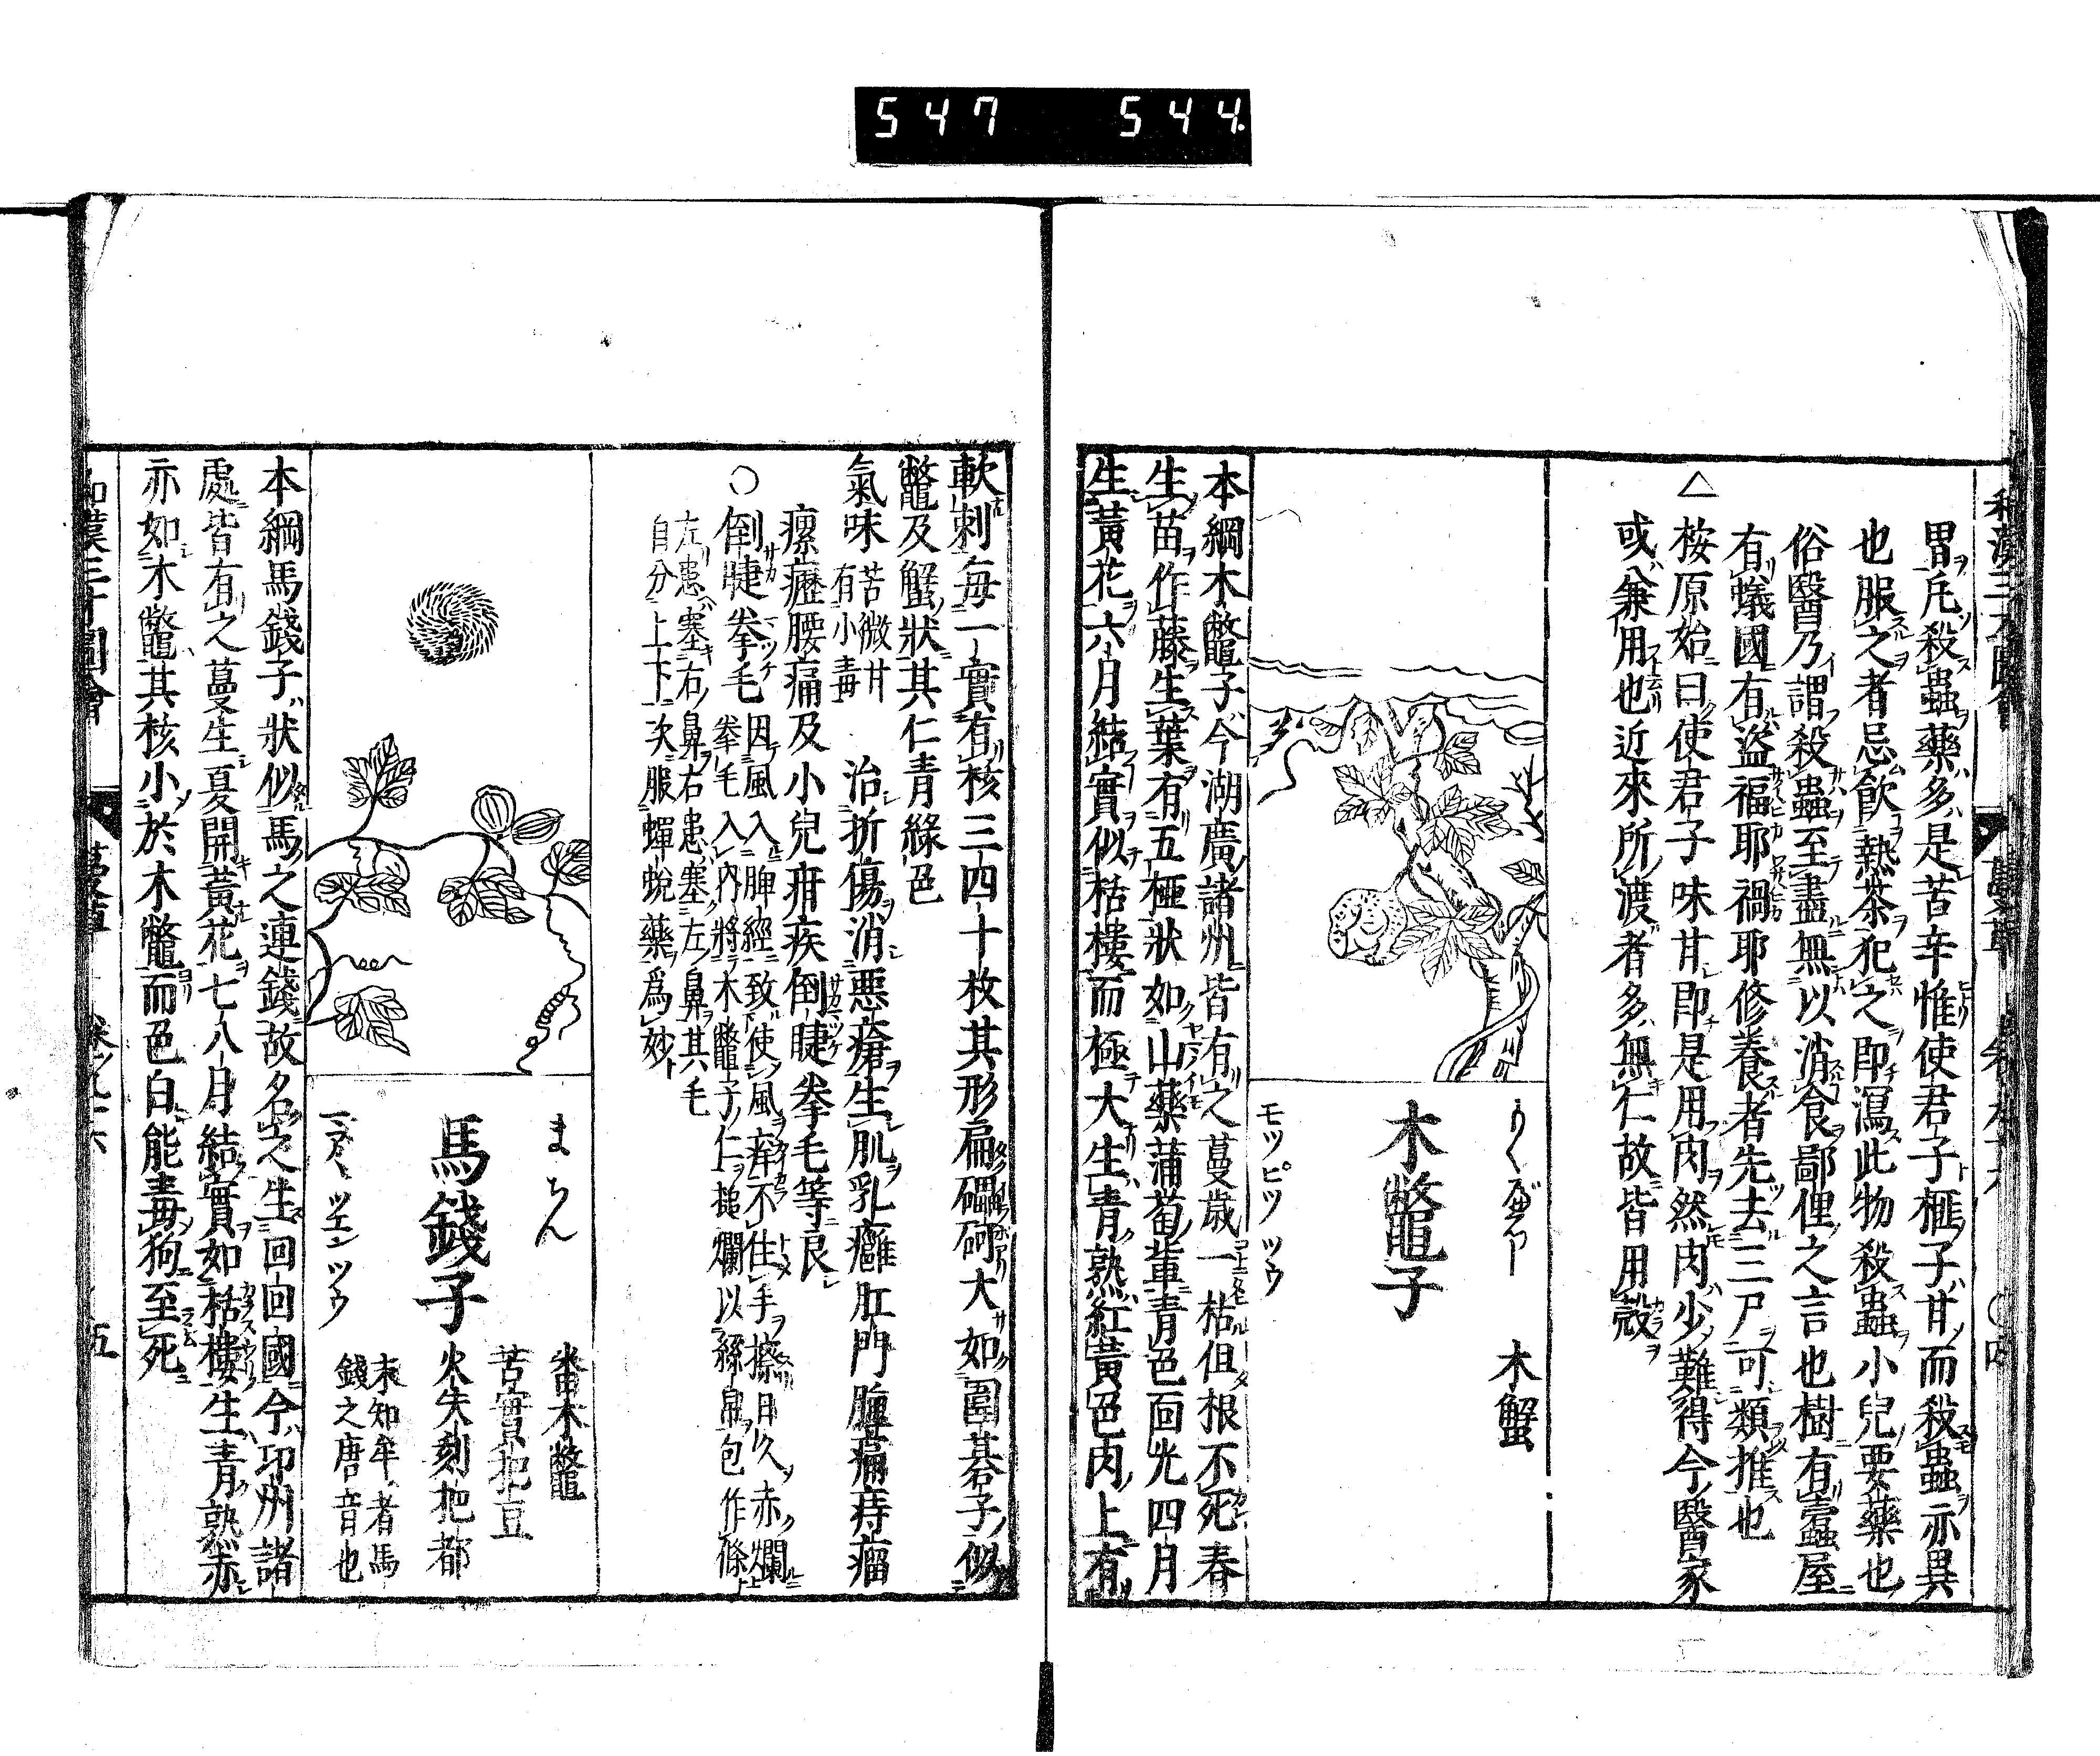 547 544
胃凡殺蟲藥多是苦辛惟使君子榧子甘而殺蟲亦異
也服之者忌飮熱茶犯之即瀉此物殺蟲小兒要藥也
俗醫乃謂殺蟲至盡無以消食鄙俚之言也樹有蠹屋
有蟻國有盜福耶禍耶修養者先去三尸可類推也
△
桉原始曰使君子味甘即是用肉然肉少難得今醫家
或兼用也近來所渡者多無仁故皆用殼
木蟹
木鼈子
モツピツ ツウ
本綱木鼈子今湖廣諸州皆有之蔓歳一枯但根不死春
生苗作藤生葉有五椏狀如山藥蒲萄輩青色面光四月
生黃花六月結實似栝樓而極大生青熟紅黃色肉上有
軟刺每一實有核三四十枚其形扁礧砢大如圍碁子似
鼈及蟹狀其仁青綠色
氣味 苦微甘
有小毒
治折傷消悪瘡生肌乳癰肛門腫痛痔瘤
瘰癧腰痛及小兒疳疾倒睫拳毛等良
○
倒睫拳毛 因風入脾經致使風痒不住手擦日久赤爛
拳毛入內將木鼈子仁搥爛以絲帛包作條
左患塞右鼻右患塞左鼻其毛
自分上下次服蟬蛻藥爲妙
まちん
馬錢子
番木鼈
苦實把豆
火失刻把都
末知牟者馬
錢之唐音也
ツエン ツウ
本綱馬錢子狀似馬之連錢故名之生回回國今卭州諸
處皆有之蔓生夏開黃花七八月結實如栝樓生青熟赤
亦如木鼈其核小於木鼈而色白能毒狗至死
和漢三才圖會 蔓草 卷ノ九十六 五